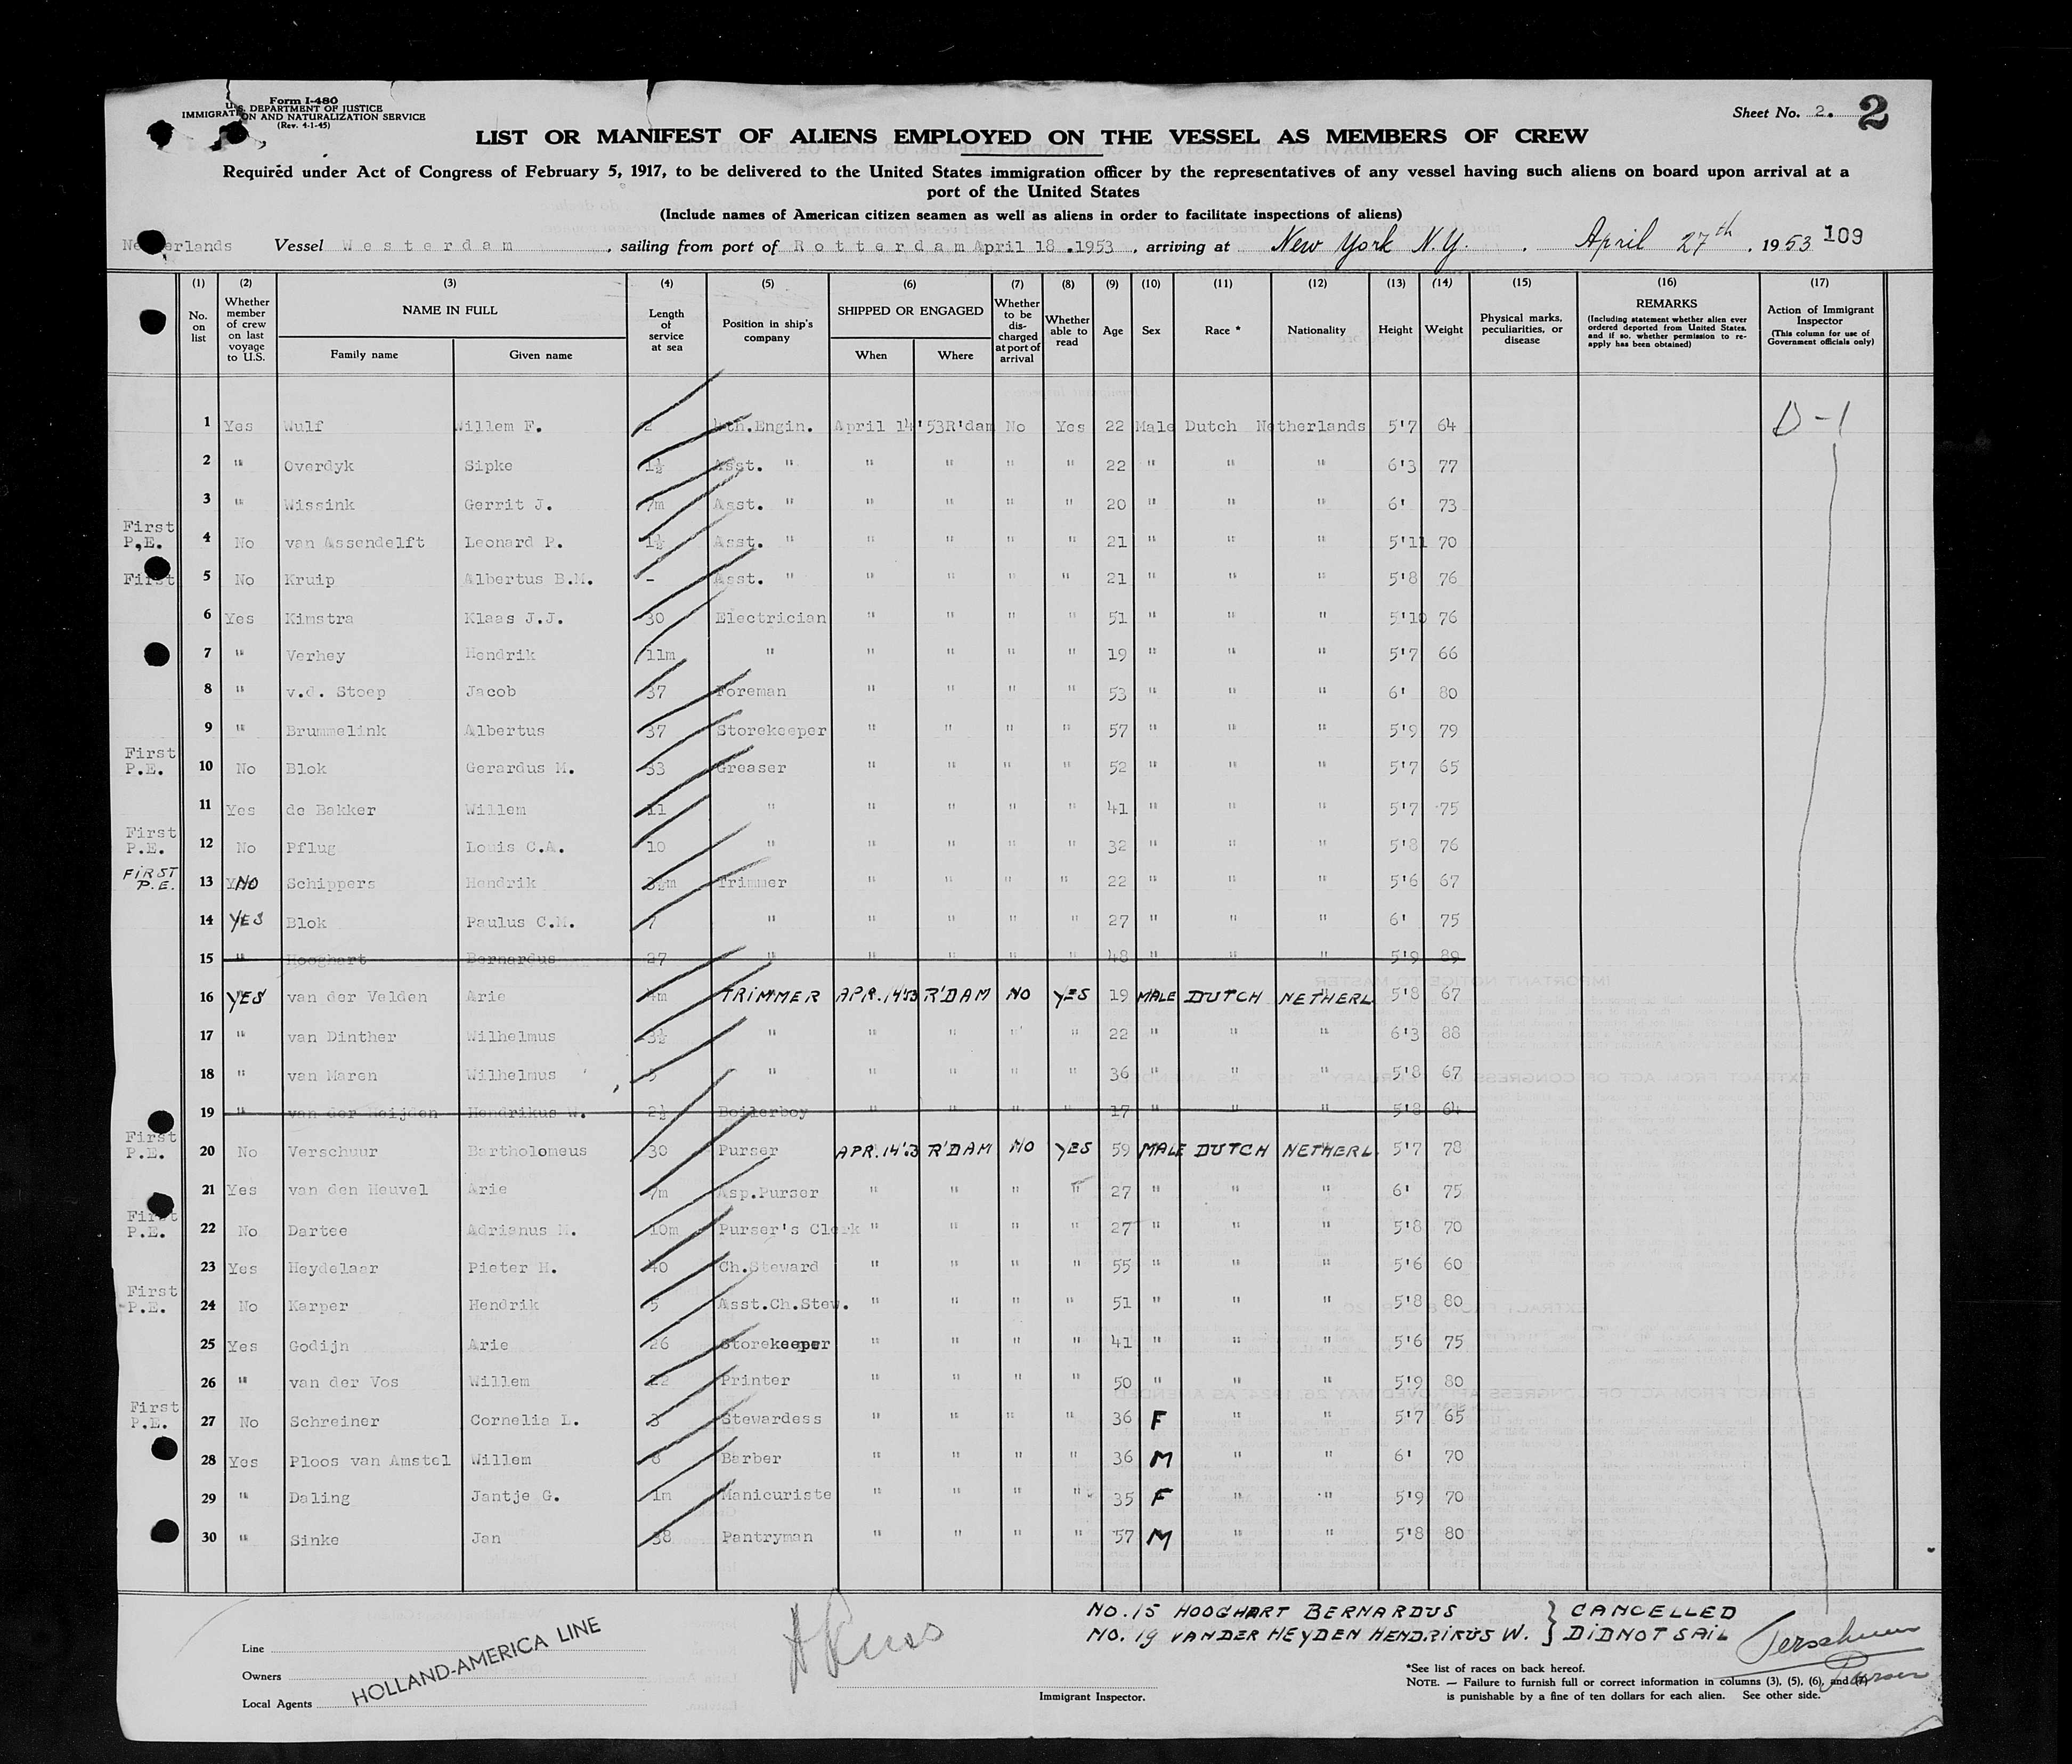 Form I-480
U.S. DEPARTMENT OF JUSTICE
IMMIGRATION AND NATURALIZATION SERVICE
(Rev. 4-1-45)
Sheet No. 2. 2
LIST OR MANIFEST OF ALIENS EMPLOYED ON THE VESSEL AS MEMBERS OF CREW
Required under Act of Congress of February 5, 1917, to be delivered to the United States immigration officer by the representatives of any vessel having such aliens on board upon arrival at a
port of the United States
(Include names of American citizen seamen as well as aliens in order to facilitate inspections of aliens)
Netherlands Vessel Westerdam, sailing from port of Rotterdam April 18.1953, arriving at New York N.Y. April 27th, 1953 109
(1) (2) (3) (4) (5) (6) (7) (8) (9) (10) (11) (12) (13) (14) (15) (16) (17)
No. on list | Whether member of crew on last voyage to U.S. | NAME IN FULL | Family name | Given name | Length of service at sea | Position in ship's company | SHIPPED OR ENGAGED | When | Where | Whether to be discharged at port of arrival | Whether able to read | Age | Sex | Race * | Nationality | Height | Weight | Physical marks, peculiarities, or disease | REMARKS (Including statement whether alien ever ordered deported from United States, and if so, whether permission to reapply has been obtained) | Action of Immigrant Inspector (This column for use of Government officials only)
1 Yes Wulf Willem F. 2 4th.Engin. April 14'53 R'dam No Yes 22 Male Dutch Netherlands 5'7 64 D-1
2 " Overdyk Sipke 1½ Asst. " " " " " 22 " " " 6'3 77
3 " Wissink Gerrit J. 7m Asst. " " " " " 20 " " " 6' 73
First P.E. 4 No van Assendelft Leonard P. 1½ Asst. " " " " " 21 " " " 5'11 70
First 5 No Kruip Albertus B.M. - Asst. " " " " " 21 " " " 5'8 76
6 Yes Kimstra Klaas J.J. 30 Electrician " " " " 51 " " " 5'10 76
7 " Verhey Hendrik 11m " " " " " 19 " " " 5'7 66
8 " v.d. Stoep Jacob 37 Foreman " " " " 53 " " " 6' 80
9 " Brummelink Albertus 37 Storekeeper " " " " 57 " " " 5'9 79
First P.E. 10 No Blok Gerardus M. 33 Greaser " " " " 52 " " " 5'7 65
11 Yes de Bakker Willem 11 " " " " " 41 " " " 5'7 75
First P.E. 12 No Pflug Louis C.A. 10 " " " " " 32 " " " 5'8 76
FIRST P.E. 13 NO Schippers Hendrik 3½m Trimmer " " " " 22 " " " 5'6 67
14 YES Blok Paulus C.M. 7 " " " " " 27 " " " 6' 75
15 " Hooghart Bernardus 27 " " " " " 48 " " " 5'9 89
16 YES van der Velden Arie 4m TRIMMER APR.14'53 R'DAM NO YES 19 MALE DUTCH NETHERL 5'8 67
17 " van Dinther Wilhelmus 3½ " " " " " 22 " " " 6'3 88
18 " van Maren Wilhelmus 5 " " " " " 36 " " " 5'8 67
19 " van der Heijden Hendrikus W. 2½ Boilerboy " " " " 17 " " " 5'8 64
First P.E. 20 No Verschuur Bartholomeus 30 Purser APR.14'53 R'DAM NO YES 59 MALE DUTCH NETHERL 5'7 78
21 Yes van den Heuvel Arie 7m Asp.Purser " " " " 27 " " " 6' 75
First P.E. 22 No Dartee Adrianus M. 10m Purser's Clerk " " " " 27 " " " 5'8 70
23 Yes Heydelaar Pieter H. 40 Ch.Steward " " " " 55 " " " 5'6 60
First P.E. 24 No Karper Hendrik 5 Asst.Ch.Stew. " " " " 51 " " " 5'8 80
25 Yes Godijn Arie 26 Storekeeper " " " " 41 " " " 5'6 75
26 " van der Vos Willem 22 Printer " " " " 50 " " " 5'9 80
First P.E. 27 No Schreiner Cornelia L. 3 Stewardess " " " " 36 F " " 5'7 65
28 Yes Ploos van Amstel Willem 8 Barber " " " " 36 M " " 6' 70
29 " Daling Jantje G. 1m Manicuriste " " " " 35 F " " 5'9 70
30 " Sinke Jan 38 Pantryman " " " " 57 M " " 5'8 80
NO.15 HOOGHART BERNARDUS } CANCELLED
NO.19 VANDER HEYDEN HENDRIKUS W. } DID NOT SAIL
Verschuur
Purser
Line
Owners
Local Agents
HOLLAND-AMERICA LINE
Immigrant Inspector.
*See list of races on back hereof.
NOTE. — Failure to furnish full or correct information in columns (3), (5), (6), and (7)
is punishable by a fine of ten dollars for each alien. See other side.